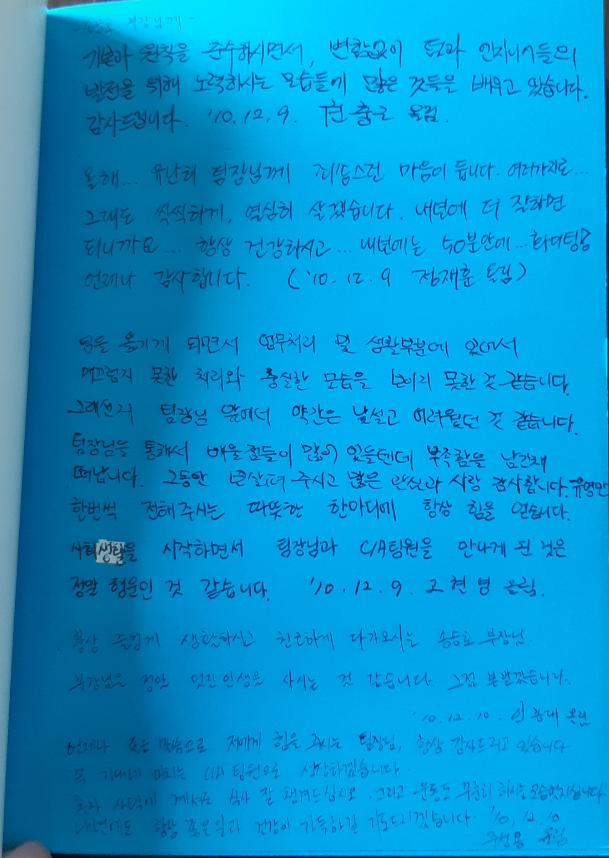 부장님께 -
기본과 원칙을 준수하시면서, 변함없이 팀과 엔지니어들의
발전을 위해 노력하시는 모습들에 많은 것들을 배우고 있습니다.
감사드립니다. '10. 12. 9. 올림.
올해... 유난히 팀장님께 죄송스런 마음이 듭니다. 여러가지로...
그래도 씩씩하게, 열심히 살겠습니다. 내년에 더 잘하면
되니까요... 항상 건강하시고... 내년에는 50분안에... 화이팅!
언제나 감사합니다. ('10. 12. 9 정재훈 올림)
팀을 옮기게 되면서 업무처리 및 생활부분에 있어서
매끄럽지 못한 처리와 충실한 모습을 보이지 못한 것 같습니다.
그래선지 팀장님 앞에서 약간은 낯설고 어려웠던 것 같습니다.
팀장님을 통해서 배울점들이 많이 있을텐데 부족함을 남긴채
떠납니다. 그동안 보살펴 주시고 많은 관심과 사랑 감사합니다. 유영만
한번씩 전해주시는 따뜻한 한마디에 항상 힘을 얻습니다.
사회생활을 시작하면서 팀장님과 C/A팀원을 만나게 된 것은
정말 행운인 것 같습니다. '10. 12. 9. 고현영 올림.
항상 즐겁게 생활하시고 친근하게 다가오시는 부장님.
부장님은 정말 멋진 인생을 사시는 것 같습니다. 그점 본받겠습니다.
'10. 12. 10. 올림
언제나 좋은 말씀으로 저에게 힘을 주시는 팀장님, 항상 감사드리고 있습니다
꼭 기대에 미치는 C/A 팀원으로 성장하겠습니다
혼자 사택에 계셔도 식사 잘 챙겨드십시오. 그리고 운동도 꾸준히 하시는 모습 멋지십니다
내년에도 항상 좋은일과 건강이 가득하길 기도드리겠습니다. '10. 12. 10
올림